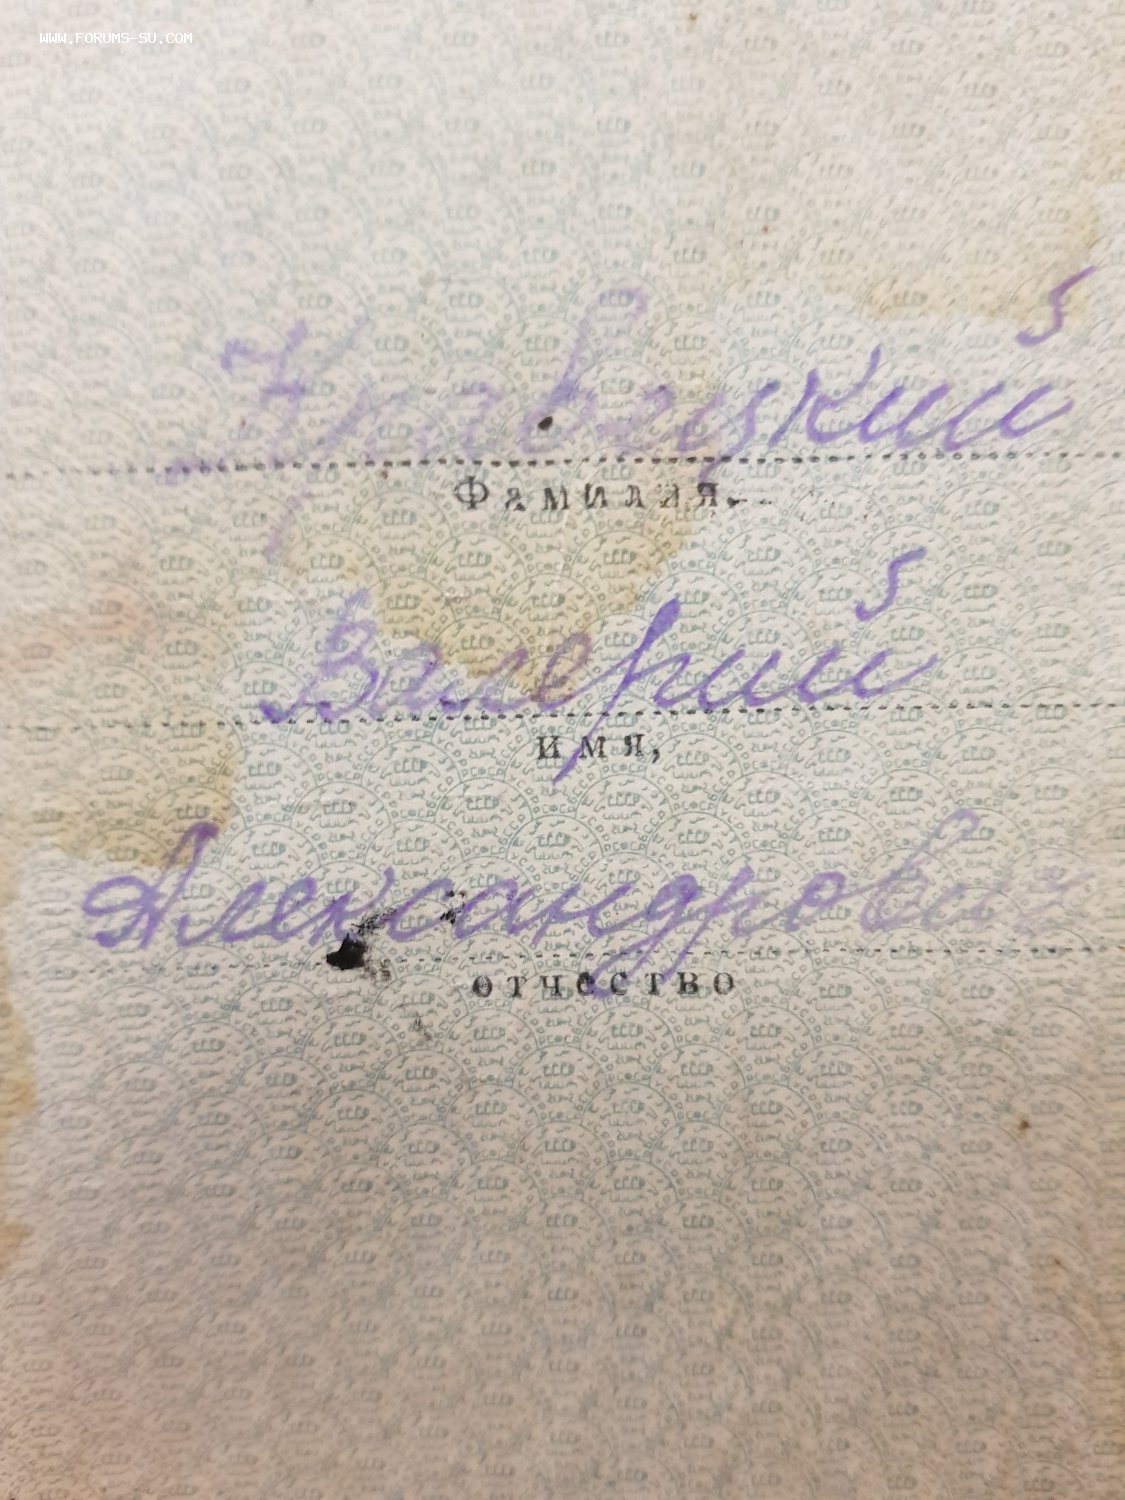 WWW.FORUMS-SU.COM
Кравецкий
Фамилия
Валерий
имя,
Александрович
отчество